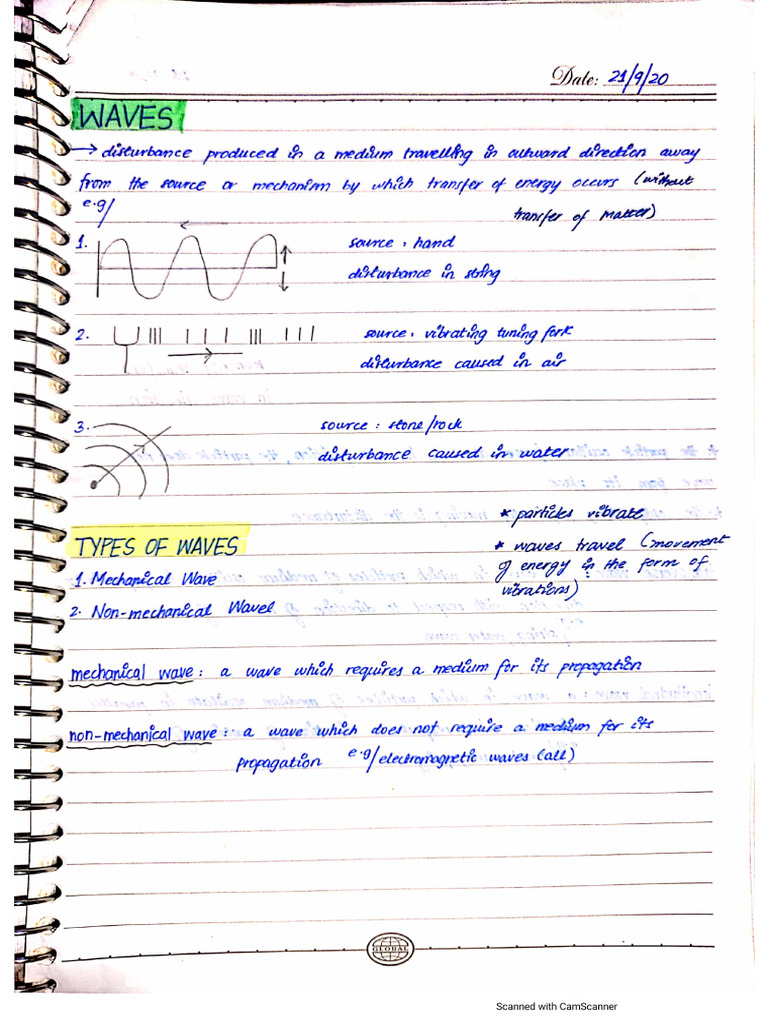 Date: 21/9/20
WAVES
→ disturbance produced in a medium travelling in outward direction away
from the source or mechanism by which transfer of energy occurs (without
transfer of matter)
e.g/
1. source : hand
disturbance in string
2. source : vibrating tuning fork
disturbance caused in air
3. source : stone/rock
disturbance caused in water
* particles vibrate
* waves travel (movement
of energy in the form of
vibrations)
TYPES OF WAVES
1. Mechanical Wave
2. Non-mechanical Wave
mechanical wave : a wave which requires a medium for its propagation
non-mechanical wave : a wave which does not require a medium for its
propagation e.g/electromagnetic waves (all)
GLOBAL
Scanned with CamScanner